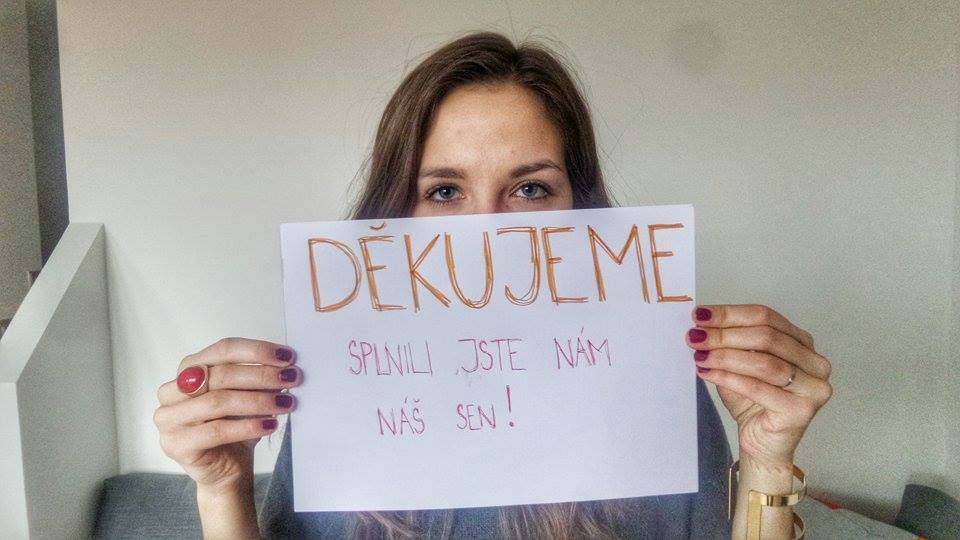 DĚKUJEME
SPLNILI JSTE NÁM
NÁŠ SEN!